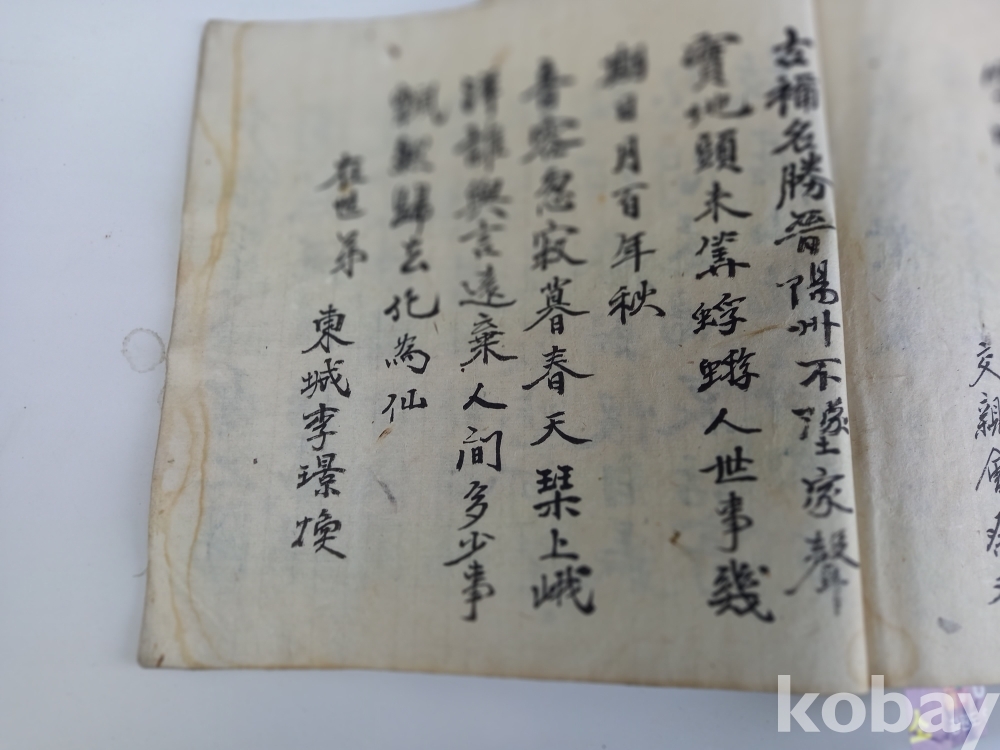 交親會
古稱名勝晉陽州不墜家聲
實地頭未筭蜉蝣人世事幾
期日月百年秋
音容忽寂暮春天琹上峨
洋誰與言遠棄人间多少事
飄然歸去化為仙
在世弟 東城李璟煥
kobay